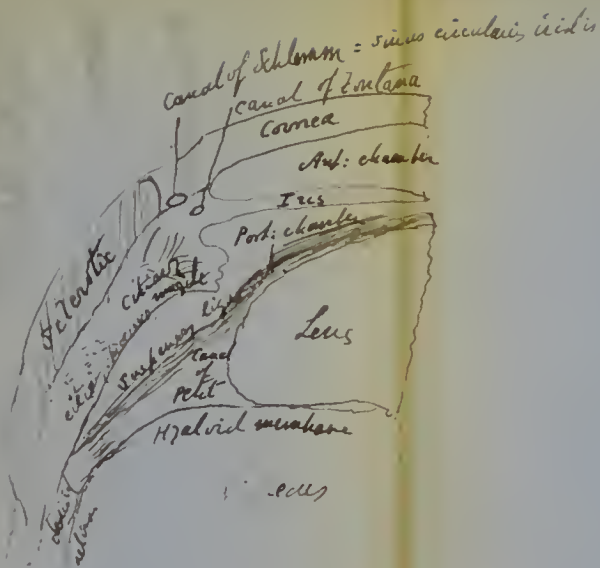 Canal of Schlemm = sinus circularis iridis
Canal of Fontana
Cornea
Ant: chamber
Iris
Post: chamber
Sclerotic
Ciliary muscle
Suspensory lig
Lens
Canal of Petit
Hyaloid membrane
retina